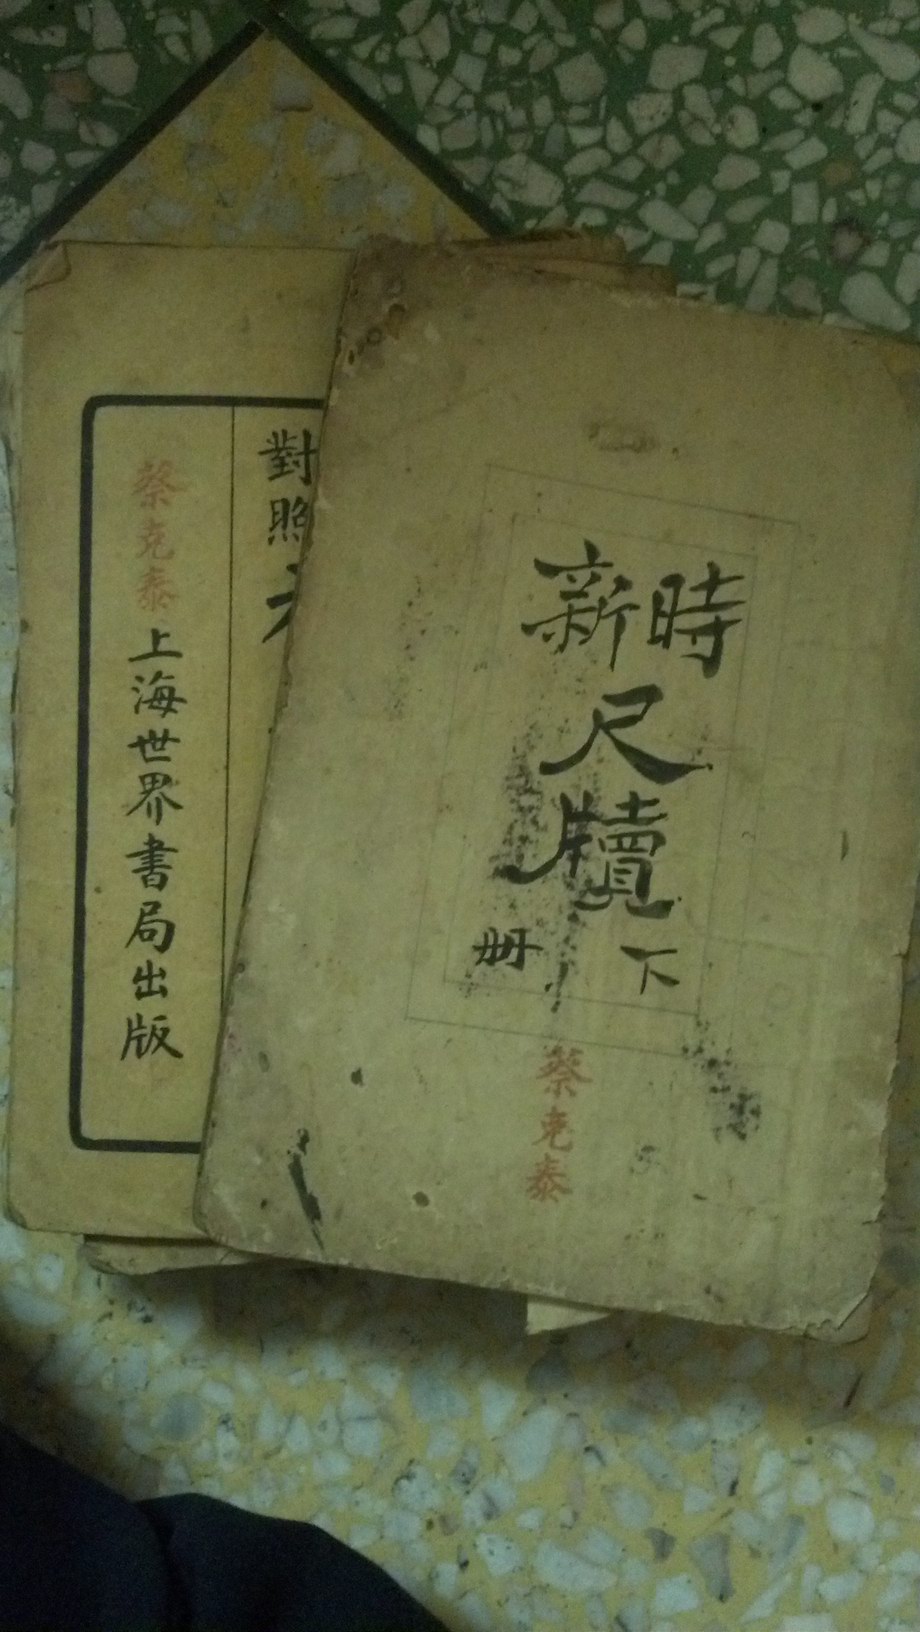 時新
尺牘
下冊
蔡克泰
對照
蔡克泰
上海世界書局出版